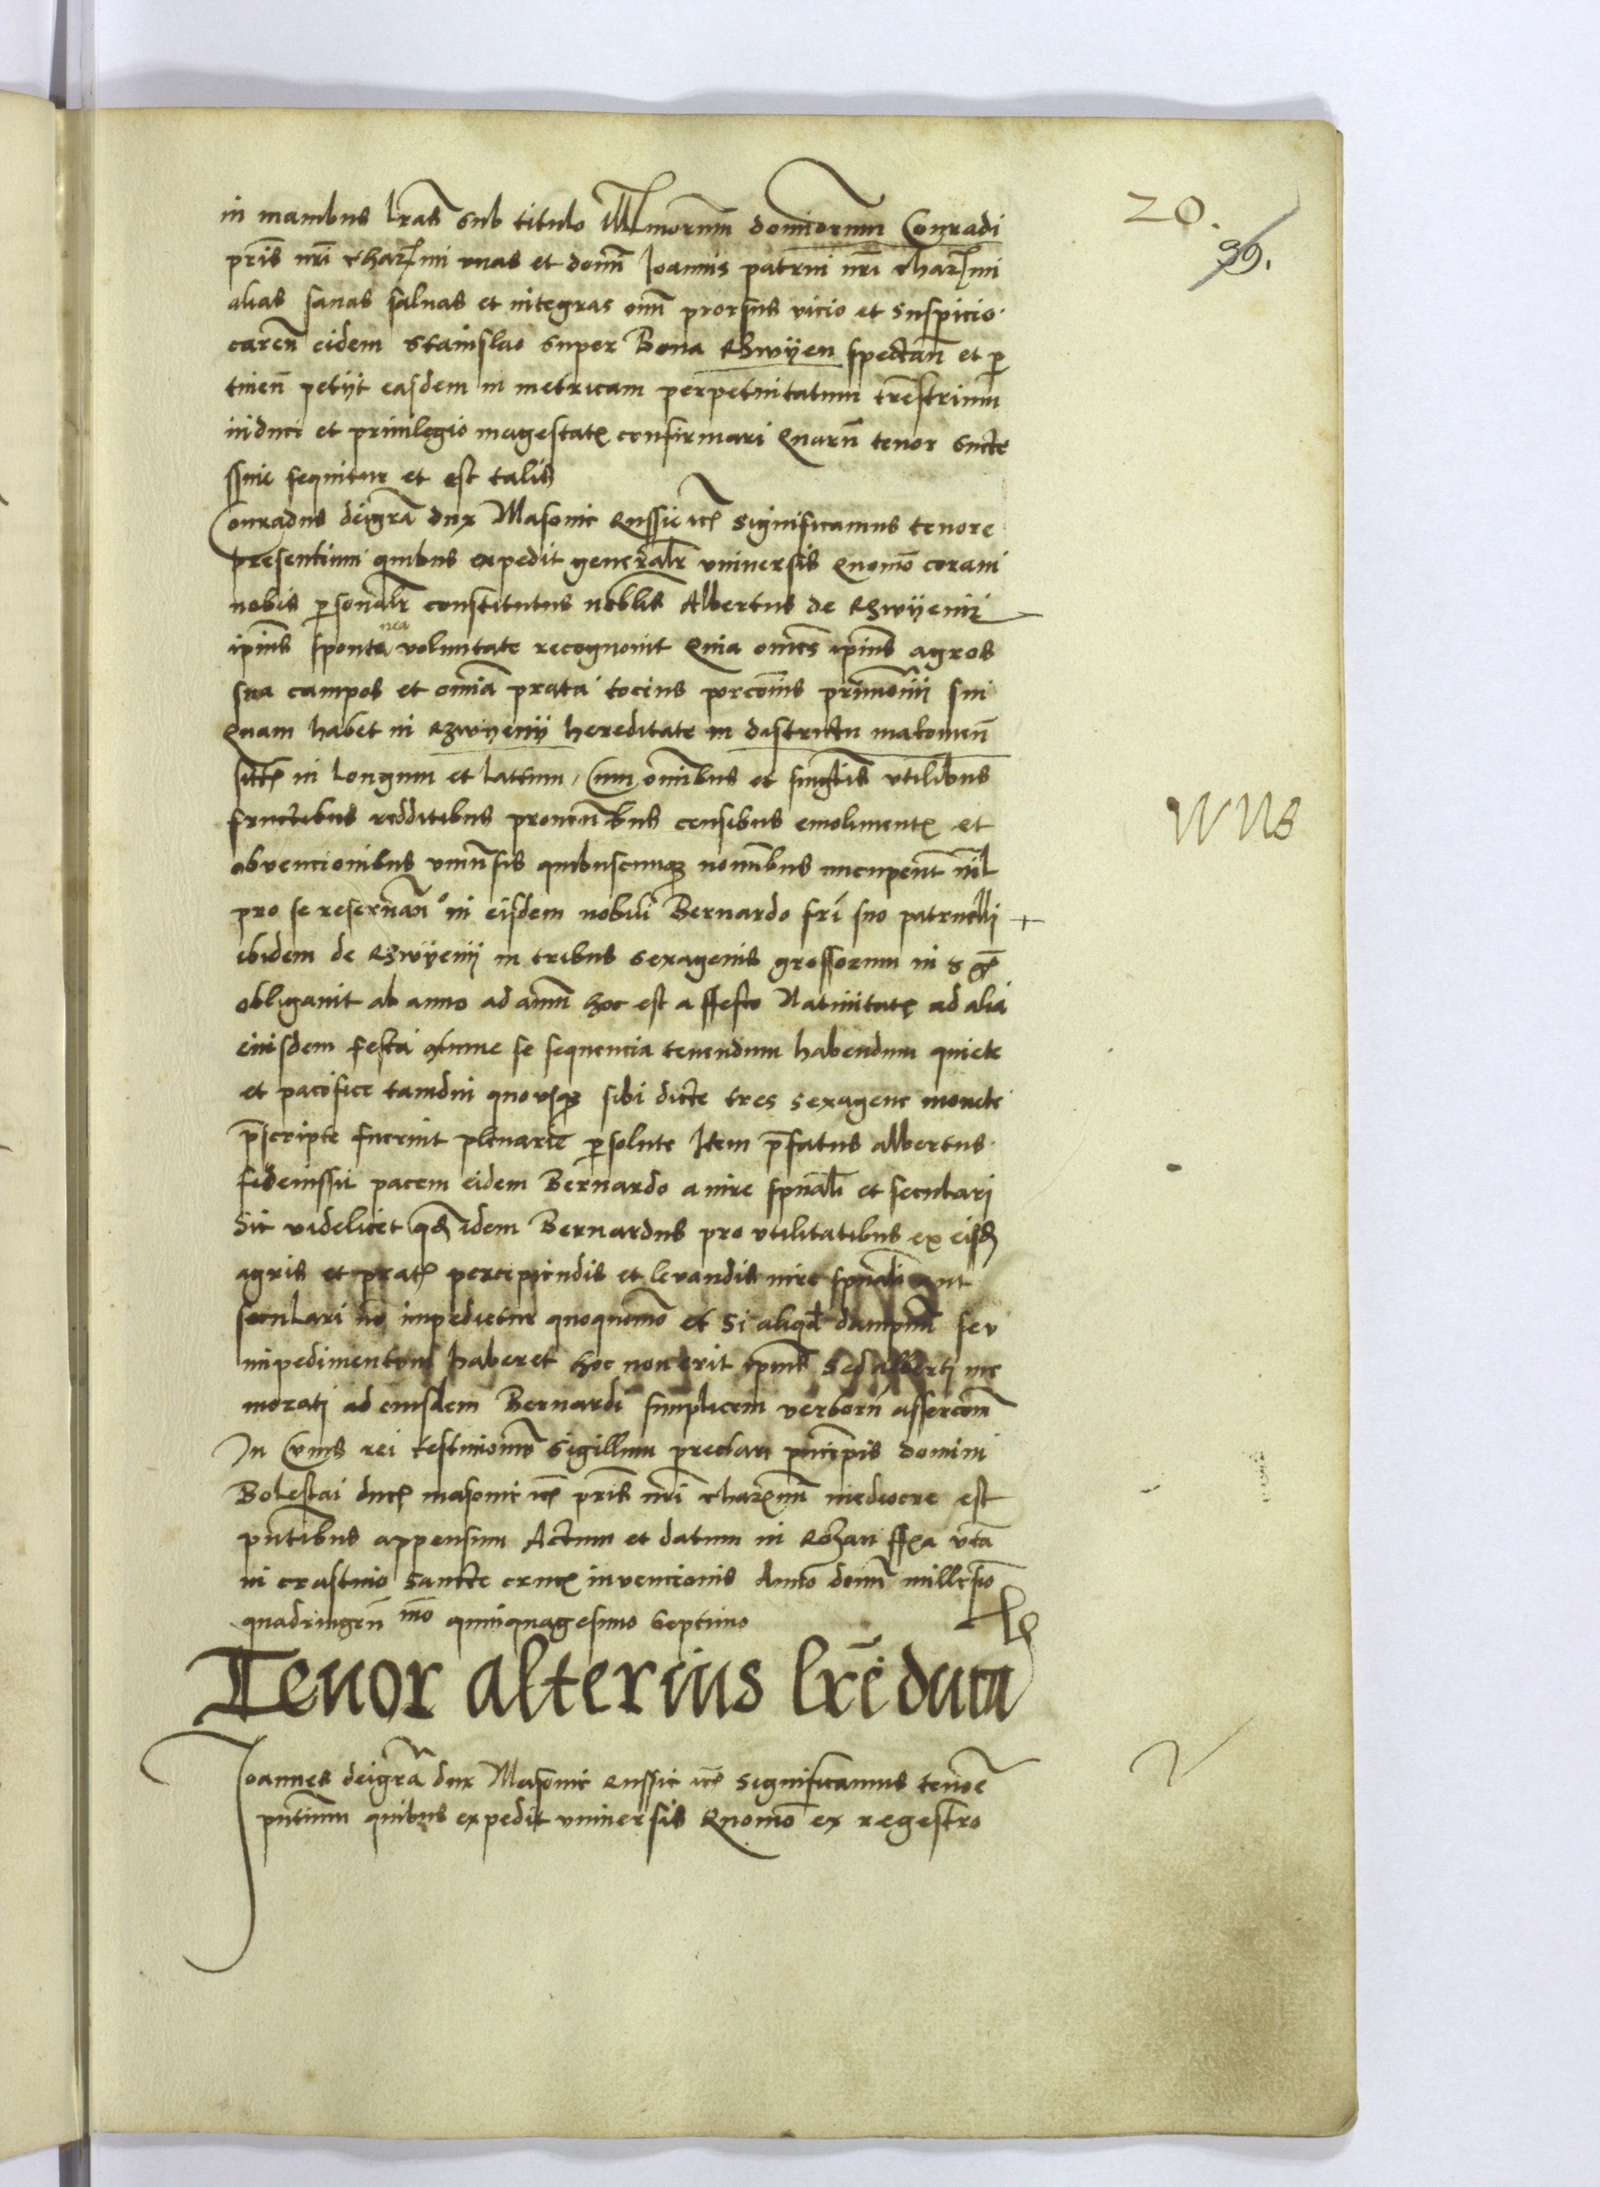 in manibus lras sub titulo Illmorum dominorum Conradi
20.
39.
pris nri charmi vnas et domi Joannis patrui nri charmi
alias sanas saluas et integras omni prorsus vicio et suspicio
caren eidem Stanislao super Bona Rzwyen spectan et per
tinen petyt easdem in metricam perpetuitatum trestrium
induci et priuilegio magestatis confirmari Quaru tenor succe
ssiue sequitur et est talis
Conradus deigra dux Masouie Russieitc significamus tenore
presentium quibus expedit generalr vniuersis Quomo coram
nobis personalr constitutus nobilis Albertus de Rzwyenij
ipius spontanea voluntate recognouit Quia omes ipius agros
sua campos et omia prata tocius porcionis primonij sui
Quam habet in Rzwyenij hereditate in districtu makouien
sitis in longum et latum, Cum omibus et singlis vtilibus
fructibus redditibus prouentibus censibus emolimentis et
WNs
obvencionibus vniuersis quibuscunqz nominibus nuncupent nil
pro se reseruan in eisdem nobili Bernardo fri suo patrueli +
ibidem de Rzwyenij in tribus sexagenis grossorum in s gr
obligauit ab anno ad annu hoc est a ffesto Natiuitatis ad alia
eiusdem festa xtune se sequencia tenendum habendum quiete
et pacifice tamdiu quousqz sibi dicte tres sexagene monete
prescripte fuerint plenarie persolute Item prefatus albertus
fideiussit pacem eidem Bernardo a iure spuali et seculari
Sic videlicet qd idem Bernardus pro vtilitatibus ex eisd
agris et pratis percipiendis et levandis iure spuali aut
seculari no impedietur quoquomo et si aliqd dampnu seu
impedimentum haberet hoc non erit ipius sed alberti me
morati ad eiusdem Bernardi simplicem verboru assercom
In Cuius rei testimomo Sigillum preclari principis domini
Boleslai ducis masouie itc pris nri charmi mediocre est
pntibus appensum Actum et datum in Rozan ffia vta
in crastino sancte crucis invencionis Anno domi millesio
quadringen mo quinquagesimo septimo
Tenor alterius lre ducis
Joannes deigra dux Masouie Russie itc significamus tenore
pntium quibus expedit vniuersis Quomo ex regestro